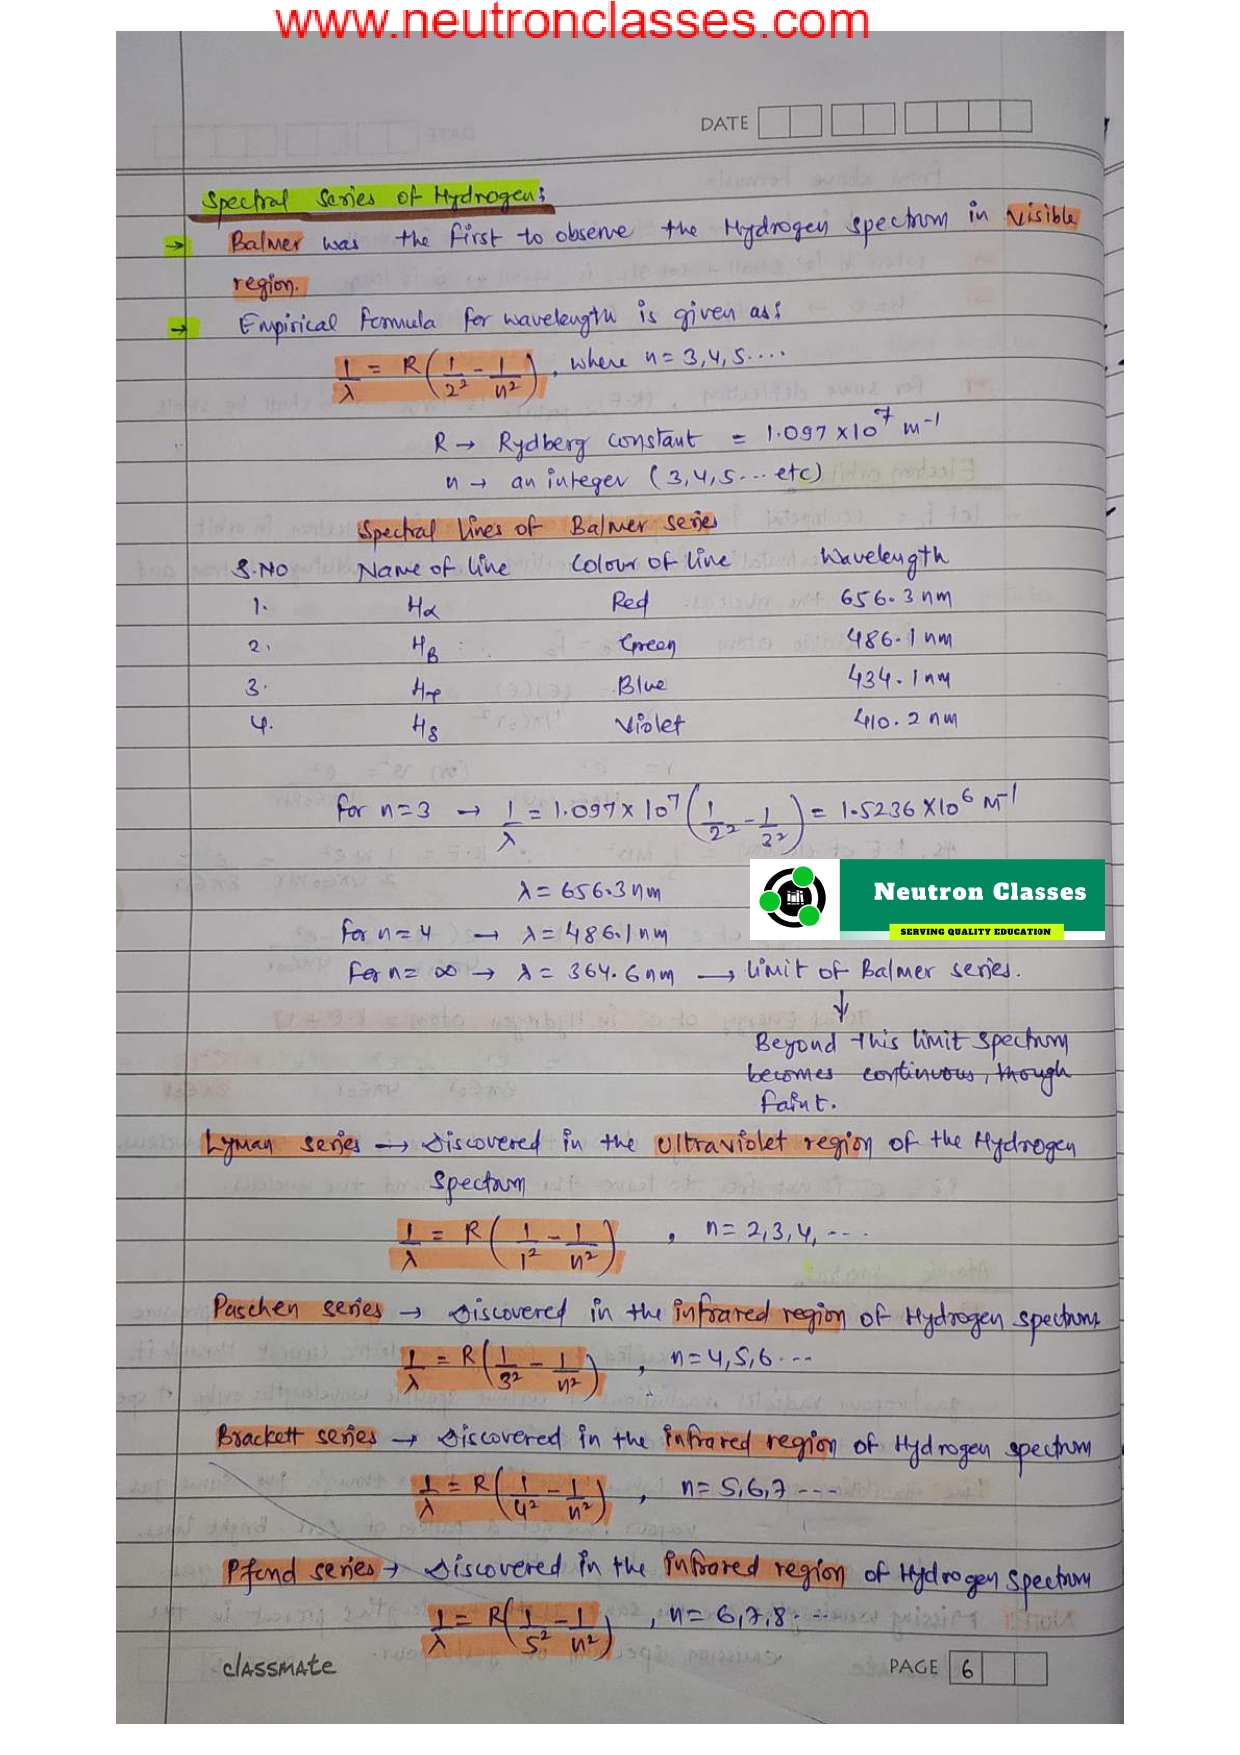 www.neutronclasses.com
DATE
Spectral Series of Hydrogen:
→ Balmer was the first to observe the Hydrogen spectrum in visible
region.
→ Empirical formula for wavelength is given as:
1/λ = R(1/2² - 1/n²), where n = 3,4,5....
R → Rydberg constant = 1.097 × 10⁷ m⁻¹
n → an integer (3,4,5... etc)
Spectral lines of Balmer series
S.NO Name of line Colour of line Wavelength
1. Hα Red 656.3 nm
2. Hβ Green 486.1 nm
3. Hγ Blue 434.1 nm
4. Hδ Violet 410.2 nm
for n=3 → 1/λ = 1.097 × 10⁷ (1/2² - 1/3²) = 1.5236 × 10⁶ m⁻¹
λ = 656.3 nm
Neutron Classes
SERVING QUALITY EDUCATION
for n=4 → λ = 486.1 nm
for n= ∞ → λ = 364.6 nm → limit of Balmer series.
↓
Beyond this limit spectrum
becomes continuous, though
faint.
Lyman series → Discovered in the ultraviolet region of the Hydrogen
spectrum
1/λ = R(1/1² - 1/n²) , n = 2,3,4, ....
Paschen series → Discovered in the infrared region of Hydrogen spectrum
1/λ = R(1/3² - 1/n²) , n=4,5,6 ...
Brackett series → Discovered in the infrared region of Hydrogen spectrum
1/λ = R(1/4² - 1/n²) , n= 5,6,7 ...
Pfund series → Discovered in the infrared region of Hydrogen spectrum
1/λ = R(1/5² - 1/n²) , n= 6,7,8 ....
classmate
PAGE 6